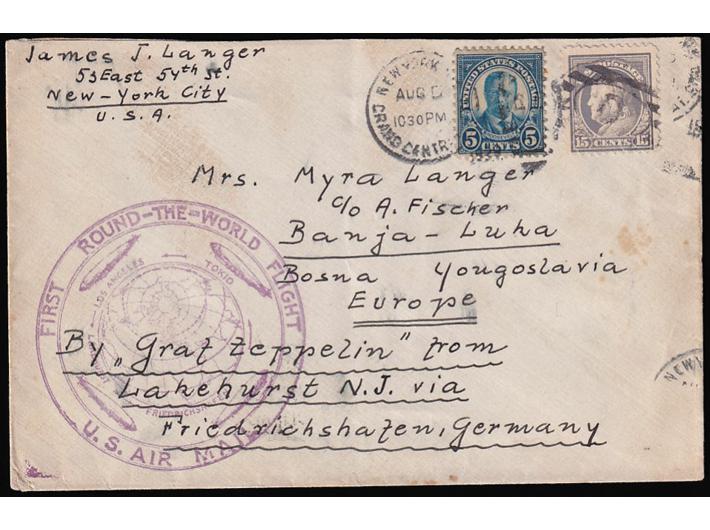 James J. Langer
53 East 54th St.
New-York City
U.S.A.
NEW YORK
AUG
1030 PM
GRAND CENTR
UNITED STATES POSTAGE
5 CENTS 5
15 CENTS 15
Mrs. Myra Langer
c/o A. Fischer
Banja-Luka
Bosna Yougoslavia
Europe
FIRST ROUND-THE-WORLD FLIGHT
LOS ANGELES
TOKIO
FRIEDRICHSH
U.S. AIR MAIL
By „Graf Zeppelin" from
Lakehurst N.J. via
Friedrichshafen, Germany
NEW Y